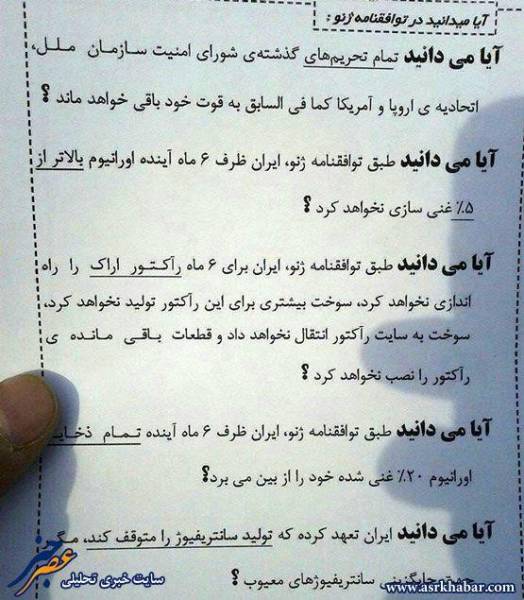 آیا میدانید در توافقنامه ژنو :
آیا می دانید تمام تحریم‌های گذشته‌ی شورای امنیت سازمان ملل،
اتحادیه ی اروپا و آمریکا کما فی السابق به قوت خود باقی خواهد ماند ؟
آیا می دانید طبق توافقنامه ژنو، ایران ظرف ۶ ماه آینده اورانیوم بالاتر از
۵٪ غنی سازی نخواهد کرد ؟
آیا می دانید طبق توافقنامه ژنو، ایران برای ۶ ماه رآکتور اراک را راه
اندازی نخواهد کرد، سوخت بیشتری برای این رآکتور تولید نخواهد کرد،
سوخت به سایت رآکتور انتقال نخواهد داد و قطعات باقی مانده ی
رآکتور را نصب نخواهد کرد ؟
آیا می دانید طبق توافقنامه ژنو، ایران ظرف ۶ ماه آینده تمام
اورانیوم ۲۰٪ غنی شده خود را از بین می برد؟
آیا می دانید ایران تعهد کرده که تولید سانتریفیوژ را متوقف کند،
جایگزینی سانتریفیوژهای معیوب ؟
عصر خبر
سایت خبری تحلیلی
www.asrkhabar.com